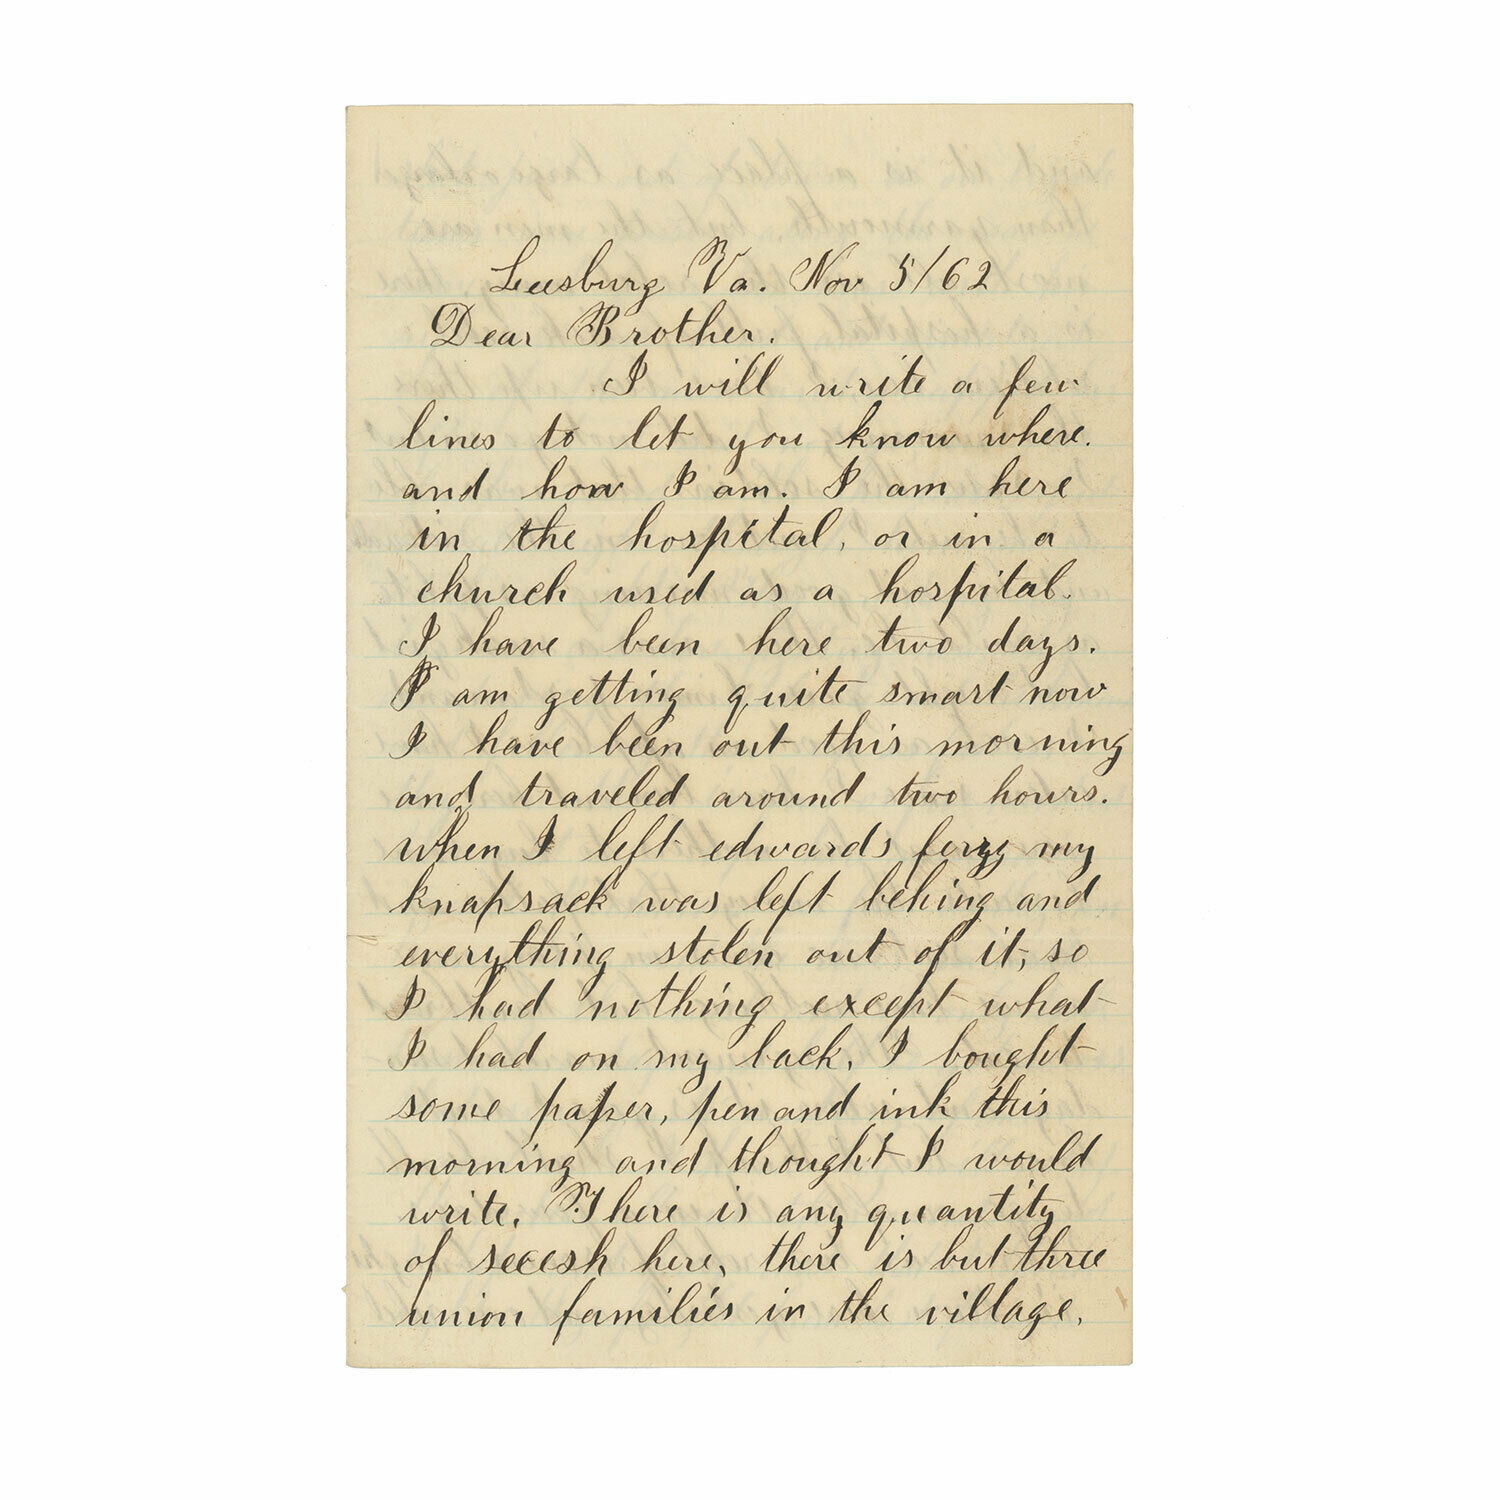 Leesburg Va. Nov 5/62
Dear Brother.
I will write a few
lines to let you know where.
and how I am. I am here
in the hospital, or in a
church used as a hospital.
I have been here two days.
I am getting quite smart now
I have been out this morning
and traveled around two hours.
when I left edwards ferry my
knapsack was left behing and
everything stolen out of it, so
I had nothing except what
I had on my back. I bought
some paper, pen and ink this
morning and thought I would
write. There is any quantity
of secesh here, there is but three
union families in the village.